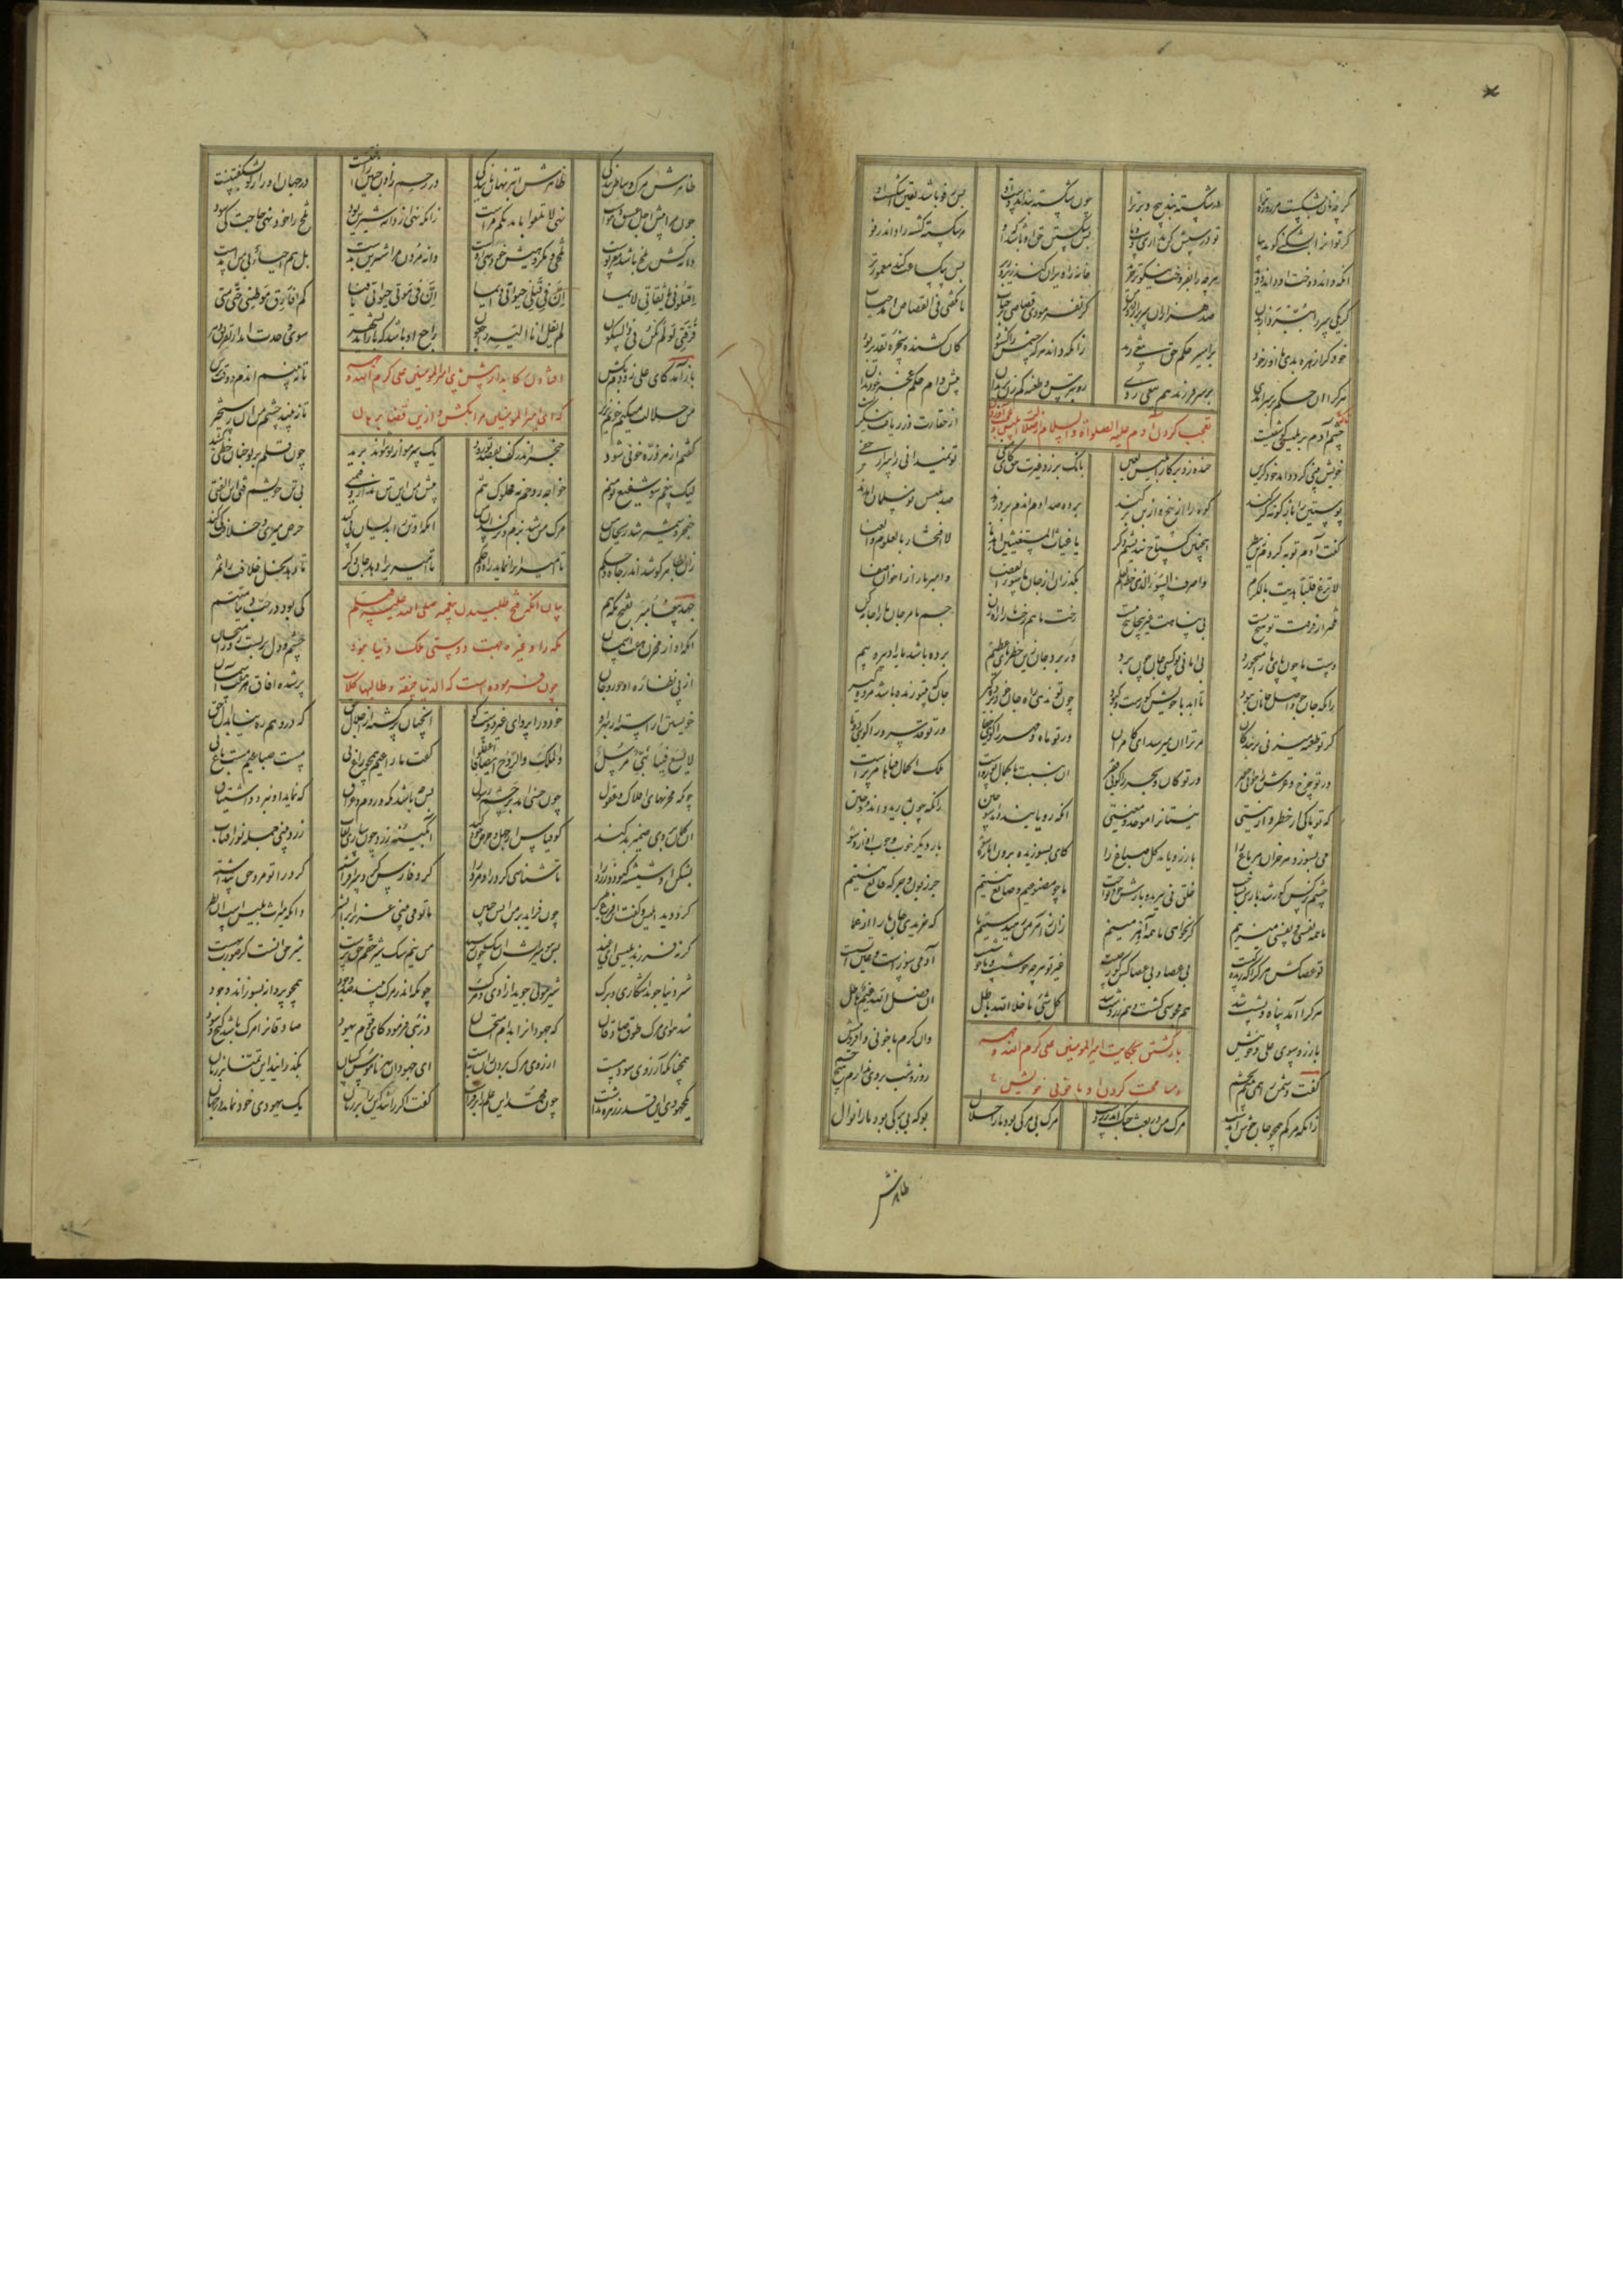 گر چه نان بشکست مر روزه ترا در شکسته بند پیچ و برترا چون شکسته بند آمد دست او پس رفو باشد یقین اشکست او
گر تو انرا بشکنی گوید بیا تو درستش کن نداری دست و پا پس شکستن حق او باشد که او مر شکسته گشته را داند رفو
انکه داند دوخت او داند درید هر چه را بفروخت نیکوتر خرید خانه را ویران کند زیر و زبر پس بیک ساعت کند معمورتر
گر یکی سر را ببرد از بدن صد هزاران سر برارد در زمن گر نفرمودی قصاصی بر جناة یا نگفتی فی القصاص امد حیات
خود کرا زهره بدی تا او ز خود بر اسیر حکم حق تیغی زند زانکه داند هر که چشمش را گشود کان کشنده سخره تقدیر بود
هر کرا ان حکم بر سر آمدی بر سر فرزند هم تیغی زدی رو بترس و طعنه کم زن بر بدان پیش دام حکم عجز خود بدان
تعجب کردن آدم علیه الصلواة و السلام از ضلالت ابلیس و عجب آوردن
چشم آدم بر بلیسی کو شقیست از حقارت وز زیافت بنگریست
خویش بینی کرد و امد خود گزین خنده زد بر کار ابلیس لعین بانک بر زد غیرت حق کای صفی تو نمیدانی ز اسرار خفی
پوستین را باژگونه گر کند کوه را از بیخ و از بن بر کند پرده صد آدم اندم بر درد صد بلیس نو مسلمان آورد
گفت آدم توبه کردم زین نظر اینچنین گستاخ نندیشم دگر یا غیاث المستغیثین اهدنا لا افتخار بالعلوم و الغنا
لا تزغ قلبا هدیت بالکرم واصرف السوء الذی خط القلم بگذران از جان ما سوء القضا وامبر ما را ز اخوان صفا
تلخ‌تر از فرقت تو هیچ نیست بی پناهت غیر پیچا پیچ نیست رخت ما هم رخت ما را راه زن جسم ما مر جان ما را جامه کن
دست ما چون پای ما را میخورد بی امانی تو کسی جان چون برد ور برد جان زین خطرهای عظیم برده باشد مایه ادبار و بیم
زانکه جان چون واصل جانان نبود تا ابد با خویش کورست و کبود چون تو ندهی راه جان خود برده گیر جان که بی تو زنده باشد مرده گیر
گر تو طعنه میزنی بر بندگان مر ترا ان میرسد ای کامران ور تو ماه و مهر را گوئی جفا ور تو قد سرو را گوئی دوتا
ور تو چرخ و عرش را خوانی حقیر ور تو کان و بحر را گوئی فقیر ان بنسبت با کمال تو رواست ملک اکمال فناها مر تراست
که تو پاکی از خطر وز نیستی نیستانرا موجد و مغنیستی انکه رویانید داند سوختن زانکه چون بدرید داند دوختن
می بسوزد هر خزان مر باغ را باز رویاند گل صباغ را کای بسوزیده برون ا تازه شو بار دیگر خوب و خوب اوازه شو
چشم نرگس کور شد بازش بساخت حلق نی ببرید و بازش خود نواخت ما چو مصنوعیم و صانع نیستیم جز زبون و جز که قانع نیستیم
ما همه نفسی و نفسی میزنیم گر نخواهی ما همه آهرمنیم زان ز آهرمن رهیدستیم ما که خریدی جان ما را از عما
تو عصاکش هر کرا که زندگیست بی عصا و بی عصاکش کور چیست غیر تو هر چه خوشست و ناخوشست آدمی سوزست و عین آتشست
هر کرا آتش پناه و پشت شد هم مجوسی گشت و هم زردشت شد کل شئی ما خلا الله باطل ان فضل الله غیم هاطل
بازگشتن بحکایت امیرالمومنین علی کرم الله وجهه
و مسامحت کردن او با خونی خویش
باز رو سوی علی و خونیش وان کرم با خونی و افزونیش
گفت دشمن را همی بینم بچشم روز و شب بر وی ندارم هیچ خشم
زانکه مرگم همچو جان خوش آمدست مرک من در بعث چنک اندر زدست مرک بی مرگی بود ما را حلال برک بی برگی بود ما را نوال
ظاهرش
ظاهرش مرک و بباطن زندگی ظاهرش ابتر نهان پایندگی در رحم زادن جنین را رفتنست در جهان او را ز نو بشکفتنست
چون مرا سوی اجل عشق و هواست نهی لا تلقوا بایدیکم مراست زانکه نهی از دانه شیرین بود تلخ را خود نهی حاجت کی شود
دانه کش تلخ باشد مغز و پوست تلخی و مکروهیش خود نهی اوست دانه مردن مرا شیرین شدست بل هم احیاء پی من امدست
اقتلونی یا ثقاتی لائما ان فی قتلی حیاتی دائما ان فی موتی حیاتی یا فتی کم افارق موطنی حتی متی
فرقتی لو لم تکن فی ذا السکون لم یقل انا الیه راجعون راجع او باشد که باز آید بشهر سوی وحدت اید از تفریق دهر
افتادن رکابدار در پیش امیرالمومنین علی کرم الله وجهه
که ای امیر المومنین مرا بکش و از این قضا برهان
باز آمد کای علی زودم بکش تا نبینم اندم و وقت ترش
من حلالت میکنم خونم بریز تا نه بیند چشم من ان رستخیز
گفتم ار هر ذره خونی شود خنجر اندر کف بقصد تو رود یک سر مو از تو نتواند برید چون قلم بر تو چنان خطی کشید
لیک بیغم شو شفیع تو منم خواجه روحم نه مملوک تنم پیش من این تن ندارد قیمتی بی تن خویشم فتی ابن الفتی
خنجر و شمشیر شد ریحان من مرک من شد بزم و نرگسدان من انکه او تن را بدینسان پی کند حرص میری و خلافت کی کند
زان بظاهر کوشد اندر جاه و حکم تا امیرانرا نماید راه و حکم تا امیری را دهد جانی دگر تا دهد نخل خلافت را ثمر
بیان انکه فتح طلبیدن پیغمبر صلی الله علیه و سلم
مکه را و غیرها بجهت دوستی ملک دنیا نبود
چون فرموده است که الدنیا جیفة و طالبها کلاب
جهد پیغمبر بفتح مکه هم کی بود در حب دنیا متهم
انکه او از مخزن هفت اسمان چشم و دل بر بست روز امتحان
از پی نظاره او حور و جان پر شده افاق هر هفت اسمان
خویشتن اراسته از بهر او خود ورا پروای غیر دوست کو انچنان پر گشته از اجلال حق که درو هم ره نیابد ال حق
لا یسع فینا نبی مرسل والملک والروح ایضا فاعقلوا گفت ما زاغیم همچون زاغ نی مست صباغیم مست باغ نی
چونکه مخزنهای افلاک و عقول چون خسی امد بر چشم رسول پس چه باشد مکه و شام و عراق که نماید او نبرد و اشتیاق
ان گمان بر وی ضمیر بد کند کو قیاس از جهل و حرص خود کند آبگینه زرد چون سازی نقاب زرد بینی جمله نور افتاب
بشکن ان شیشه کبود و زرد را تا شناسی گرد را و مرد را گرد فارس گرد سر افراشته گرد را تو مرد حق پنداشته
گرد دید ابلیس و گفت این فرع طین چون فزاید بر من اتش جبین تا تو می بینی عزیزانرا بشر دانکه میراث بلیس است ان نظر
گر نه فرزند بلیسی ای عنید پس بتو میراث ان سگ چون رسید من نیم سگ شیر حقم حق پرست شیر حق انست کز صورت برست
شیر دنیا جوید اشکاری و برک شیر مولی جوید ازادی و مرک چونکه اندر مرک بیند صد وجود همچو پروانه بسوزاند وجود
شد هوای مرک طوق صادقان که جهودانرا بد این دم امتحان در نبی فرمود کای قوم یهود صادقانرا مرک باشد گنج و سود
همچنانکه آرزوی سود هست ارزوی مرک بردن زان بهست ای جهودان بهر ناموس کسان بگذرانید این تمنا بر زبان
یک جهودی این قدر زهره نداشت چون محمد این علم را بر فراشت گفت اگر رانند این را بر زبان یک یهودی خود نماند در جهان